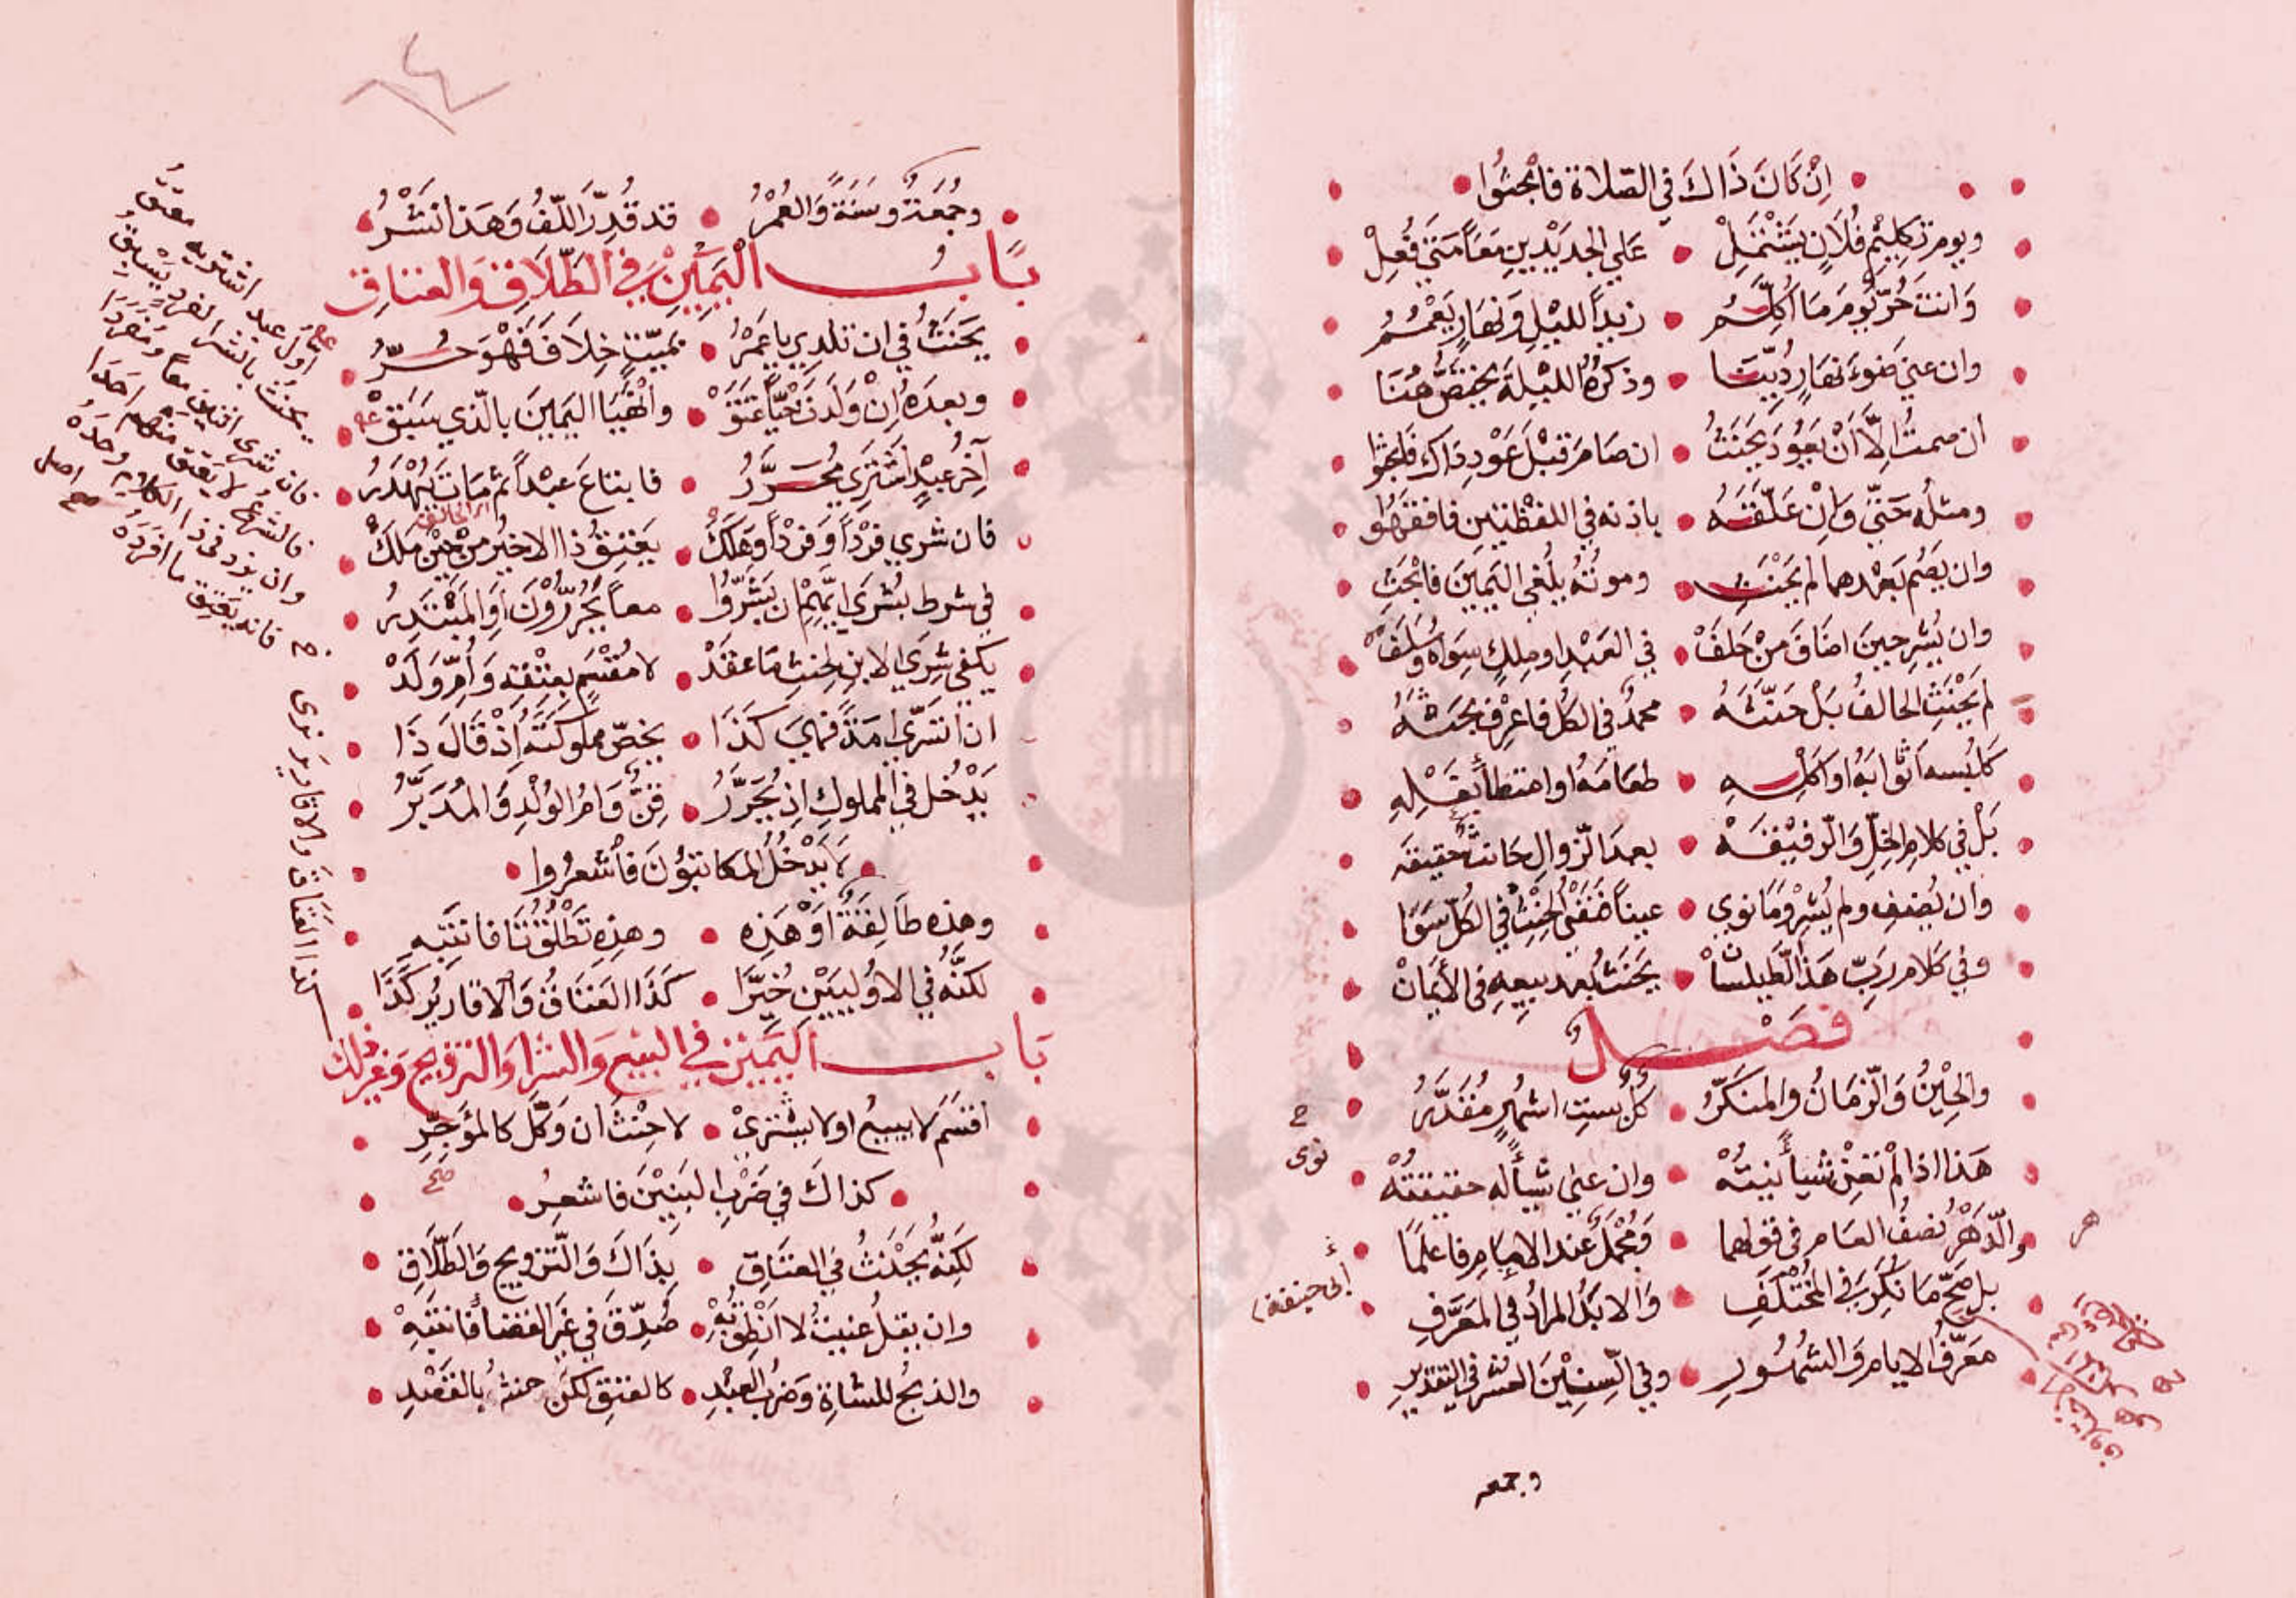 ان كَانَ ذَاكَ في الصلاة فابحثوا
ويوم تكليم فلان يشتمل على الجديدين معا متى فعل
وانت حر يوم ما اكلم زيدا لليل ونهار يعمم
وان عنى ضوء نهار دينا وذكره لليلة يختص هنا
ان صمت الا أن يعود يحنث ان صام قبل عود ذاك فابحثوا
ومثله حتى وان علقته باذنه في اللفظتين فافقهوا
وان يصم بعدهما لم يحنث وموته يلغي اليمين فابحث
وان يشر حين اضاف من حلف في العبد او ملك سواه وسلف
لم يحنث الحالف بل حنثه محمد في الكل فاعرف بحثه
كلبسه اثوابه او اكله طعامه او امتطا بغله
بل في كلام الخل والرفيقه بعد الزوال حانث حقيقه
وان يضف ولم يشر وما نوى عينا فنفي الحنث في الكل سوا
وفي كلام رب هذا الطيلسان يحنث بعد بيعه في الأيمان
فصل
والحين والزمان والمنكر كل بست اشهر مقدر
هذا اذا لم تعن شيأ نيته وان عنى شيأ له حقيقته
والدهر نصف العام في قولهما ومجمل عند الامام فاعلما
بل صح ما نكر في المختلف والابد المراد في المعرف
معرف الايام والشهور وفي السنين العشر في التقدير
نوى
أبي حنيفة
وجمعه
وجمعة وسنة والعمر قد قدر اللف وهذا نشر
باب اليمين في الطلاق والعتاق
يحنث في ان تلدي يا عمر بميت خلاف فهو حر
وبعده ان ولدت حيا عتق وانهيا اليمين بالذي سبق
آخر عبد اشتري محرر فابتاع عبدا ثم مات يهدر
فان شرى فردا وفردا وهلك يعتق ذا الاخير من حين ملك
اى الحالف
في شرط بشرى ايهم ان بشروا معا يحررون او المبتدر
يكفي شرى الابن لحنث ما عقد لا مقسم بعتقه وام ولد
ان اتسرى امة فهي كذا يخص مملوكته اذ قال ذا
يدخل في المملوك اذ يحرر قن وام الولد والمدبر
لا يدخل المكاتبون فاشعروا
وهذه طالقة او هذه وهذه تطلق تا فانتبه
لكنه في الاوليين خيرا كذا العتاق والاقارير كذا
باب اليمين في البيع والشرا والتزويج وغير ذلك
اقسم لا يبيع او لا يشتري لا حنث ان وكل كالمؤجر
كذاك في ضرب البنين فاشعر
صح
لكنه يحنث في العتاق بذاك والتزويج والطلاق
وان يقل عنيت لا انطق به صدق في غير القضا فانتبه
والذبح للشاة وضرب العبد كالعتق لكن حنثه بالفقد
اول عبد اشتريه معتق
يحنث بالشرا لفرد يسبق
فان شرى اثنين معا ومفردا
فالشرع لا يعتق منهم احدا
وان يزد في ذا الكلام وحده
فانه يعتق ما افرده
صح اصل
كذا العتاق والاقارير نوى